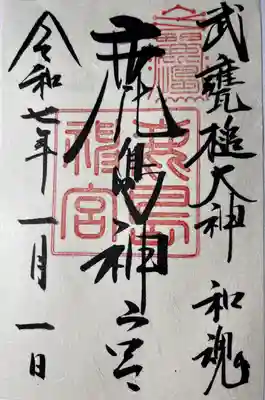 武甕槌大神 和魂
鹿島神宮
鹿島神宮
令和七年 一月 一日